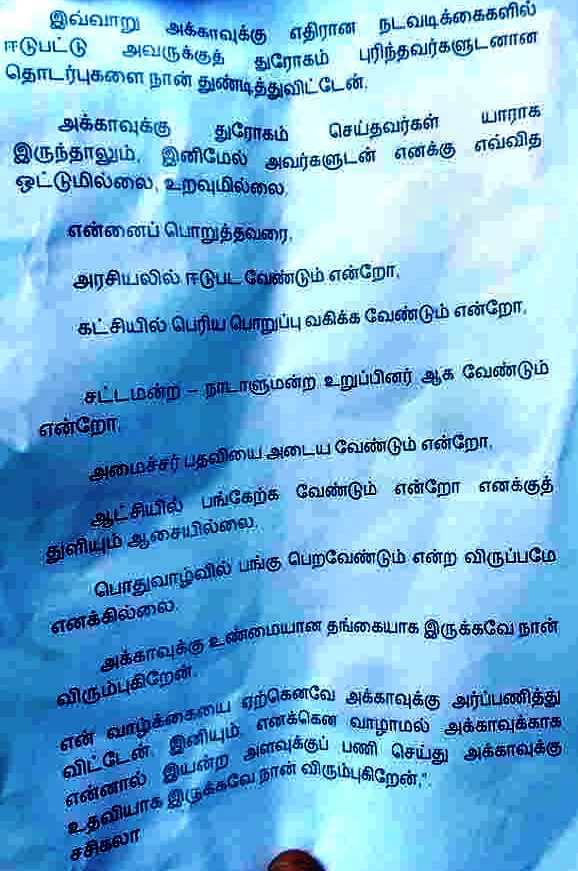 இவ்வாறு அக்காவுக்கு எதிரான நடவடிக்கைகளில்
ஈடுபட்டு அவருக்குத் துரோகம் புரிந்தவர்களுடனான
தொடர்புகளை நான் துண்டித்துவிட்டேன்.
அக்காவுக்கு துரோகம் செய்தவர்கள் யாராக
இருந்தாலும், இனிமேல் அவர்களுடன் எனக்கு எவ்வித
ஒட்டுமில்லை, உறவுமில்லை.
என்னைப் பொறுத்தவரை,
அரசியலில் ஈடுபட வேண்டும் என்றோ,
கட்சியில் பெரிய பொறுப்பு வகிக்க வேண்டும் என்றோ,
சட்டமன்ற – நாடாளுமன்ற உறுப்பினர் ஆக வேண்டும்
என்றோ,
அமைச்சர் பதவியை அடைய வேண்டும் என்றோ,
ஆட்சியில் பங்கேற்க வேண்டும் என்றோ எனக்குத்
துளியும் ஆசையில்லை.
பொதுவாழ்வில் பங்கு பெறவேண்டும் என்ற விருப்பமே
எனக்கில்லை.
அக்காவுக்கு உண்மையான தங்கையாக இருக்கவே நான்
விரும்புகிறேன்.
என் வாழ்க்கையை ஏற்கெனவே அக்காவுக்கு அர்ப்பணித்து
விட்டேன். இனியும், எனக்கென வாழாமல் அக்காவுக்காக
என்னால் இயன்ற அளவுக்குப் பணி செய்து அக்காவுக்கு
உதவியாக இருக்கவே நான் விரும்புகிறேன்,".
சசிகலா